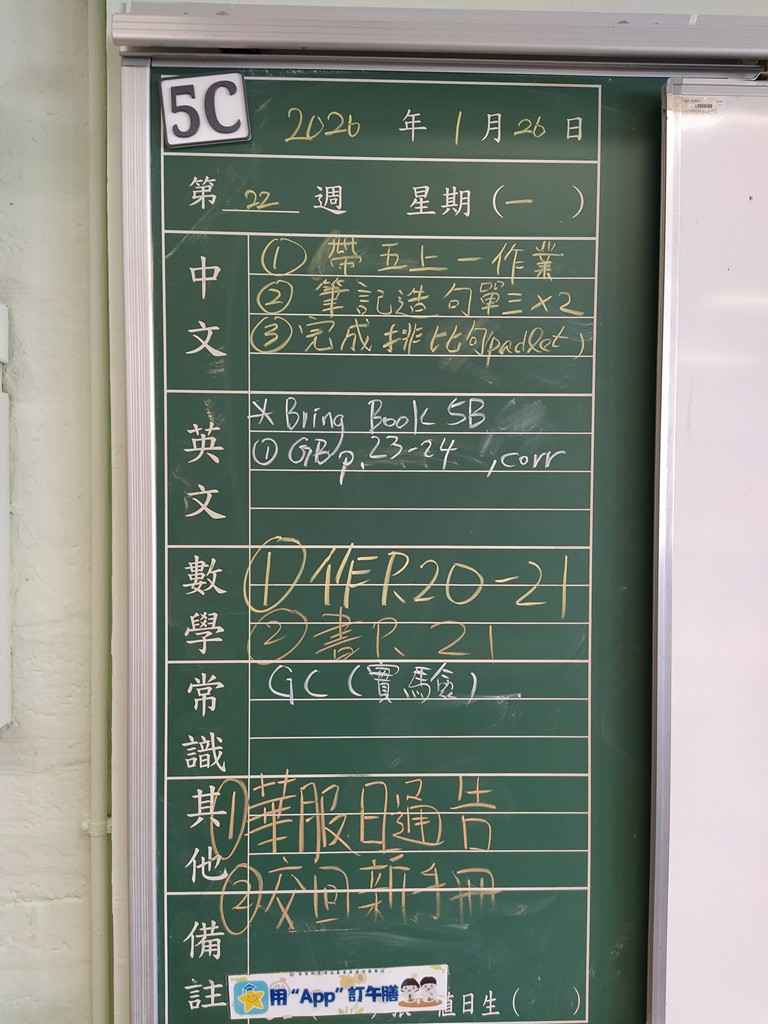 5C
2026 年 1 月 26 日
第 22 週 星期 (一 )
中文
① 帶五上一作業
② 筆記造句單三×2
③ 完成排比句padlet)
英文
* Bring Book 5B
① GB p.23-24 ,corr
數學
① 作P.20-21
② 書P. 21
常識
GC (實驗)
其他
① 華服日通告
② 交回新手冊
備註
用“App”訂午膳
值日生 ( )